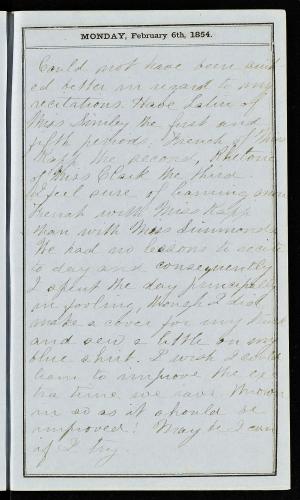 MONDAY, February 6th, 1854.
Could not have been suit
ed better in regard to my
recitations. Have Latin of
Miss the first and
fifth periods; French of Miss
Kapp the second, Rhetoric
of Miss Clark the third.
I feel sure of learning more
French with Miss Kapp
than with Miss Simmonds.
We had no lessons to recite
to day and consequently
I spent the day principally
in fooling, though I did
make a cover for my
and sew a little on my
blue skirt. I wish I could
learn to improve the ex
tra time we have thrown
in so as it should be
improved! May be I can
if I try.